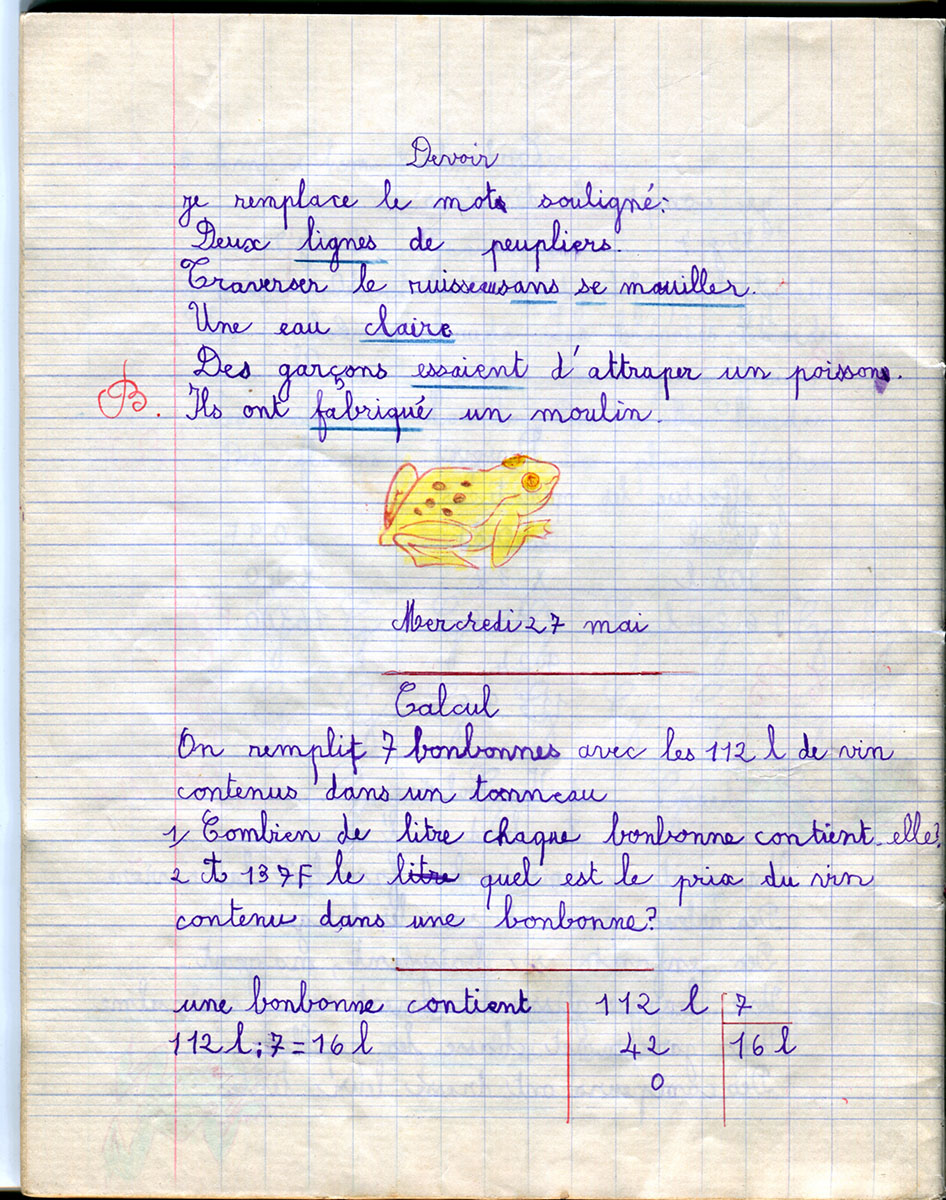 Devoir
je remplace le mot souligné:
Deux lignes de peupliers.
Traverser le ruisseau sans se mouiller.
Une eau claire
Des garçons essaient d'attraper un poisson.
B. Ils ont fabriqué un moulin.
Mercredi 27 mai
Calcul
On remplit 7 bonbonnes avec les 112 l de vin
contenus dans un tonneau
1) Combien de litre chaque bonbonne contient-elle?
2 A 137F le litre quel est le prix du vin
contenu dans une bonbonne?
une bonbonne contient 112 l 7
112 l : 7 = 16 l 42 16 l
0